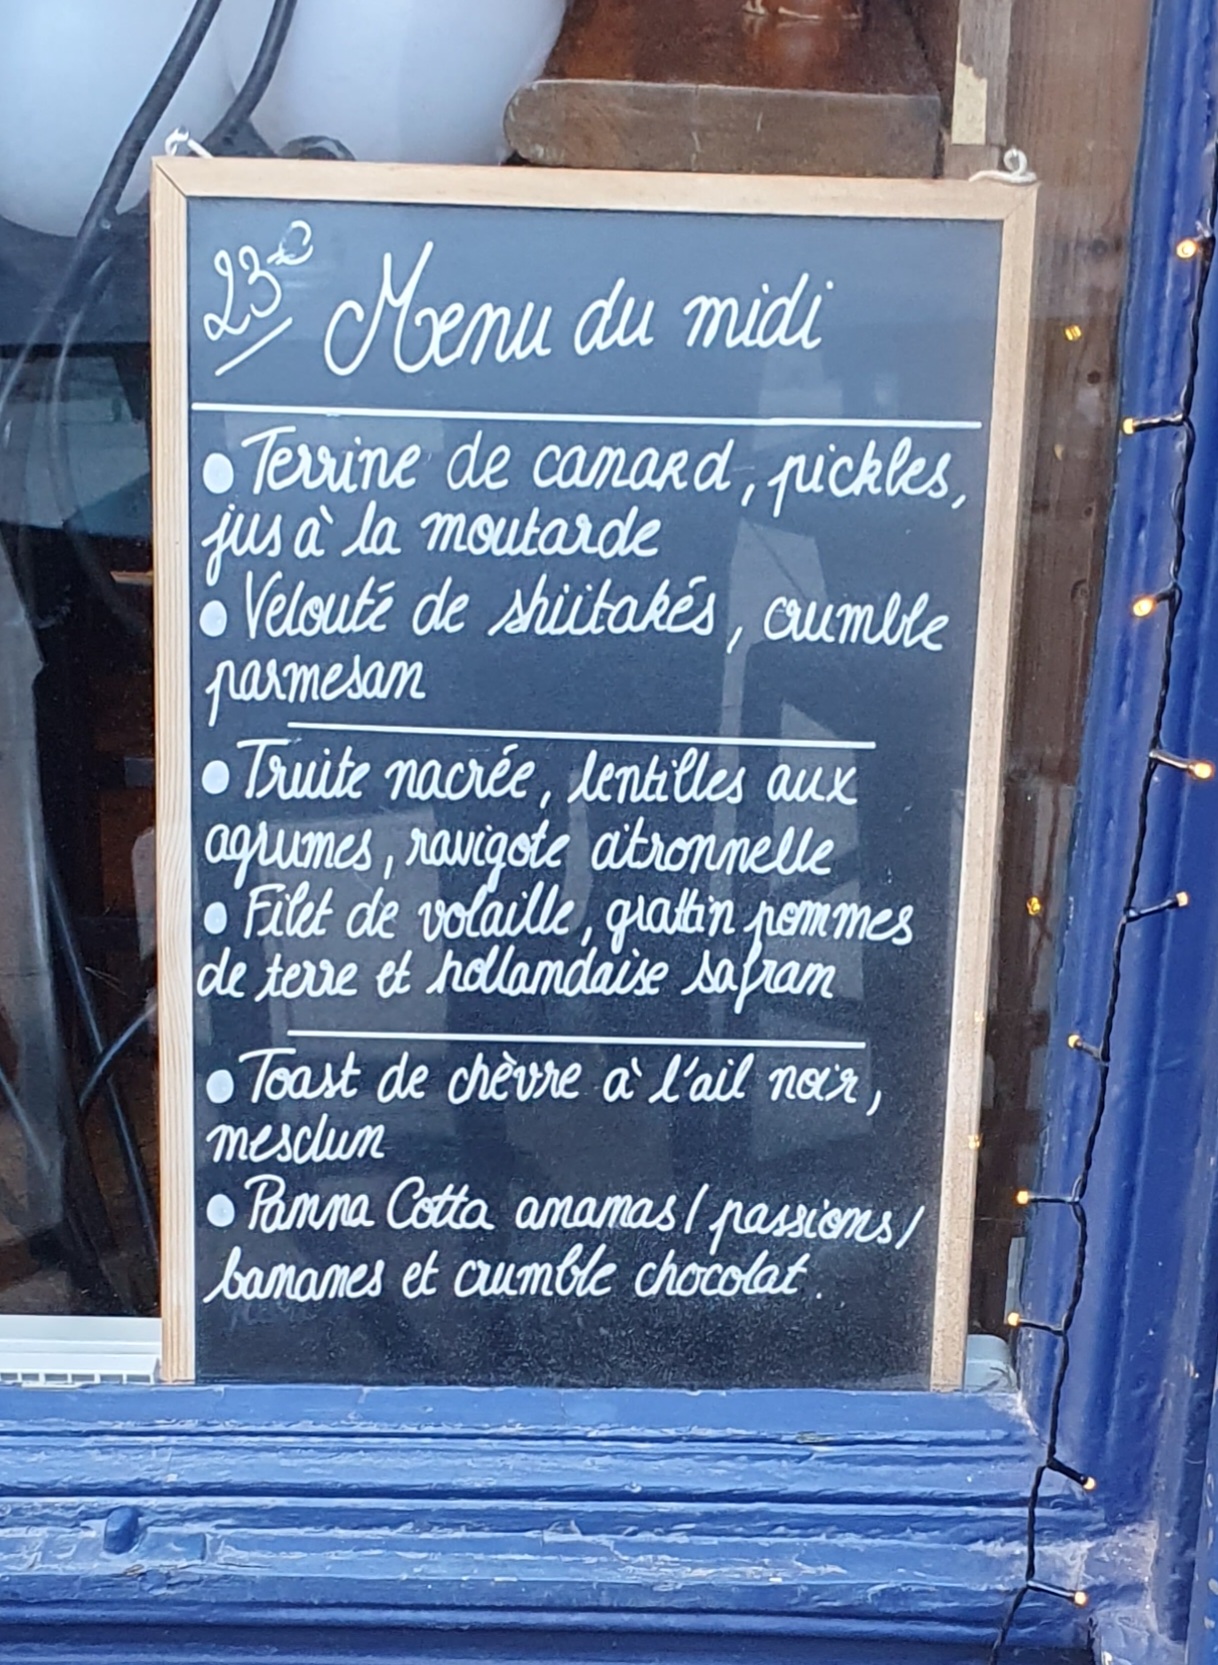 23€ Menu du midi
• Terrine de canard, pickles,
jus à la moutarde
• Velouté de shiitakés, crumble
parmesan
• Truite nacrée, lentilles aux
agrumes, ravigote citronnelle
• Filet de volaille, grattin pommes
de terre et hollandaise safran
• Toast de chèvre à l'ail noir,
mesclun
• Panna Cotta ananas / passions /
bananes et crumble chocolat.